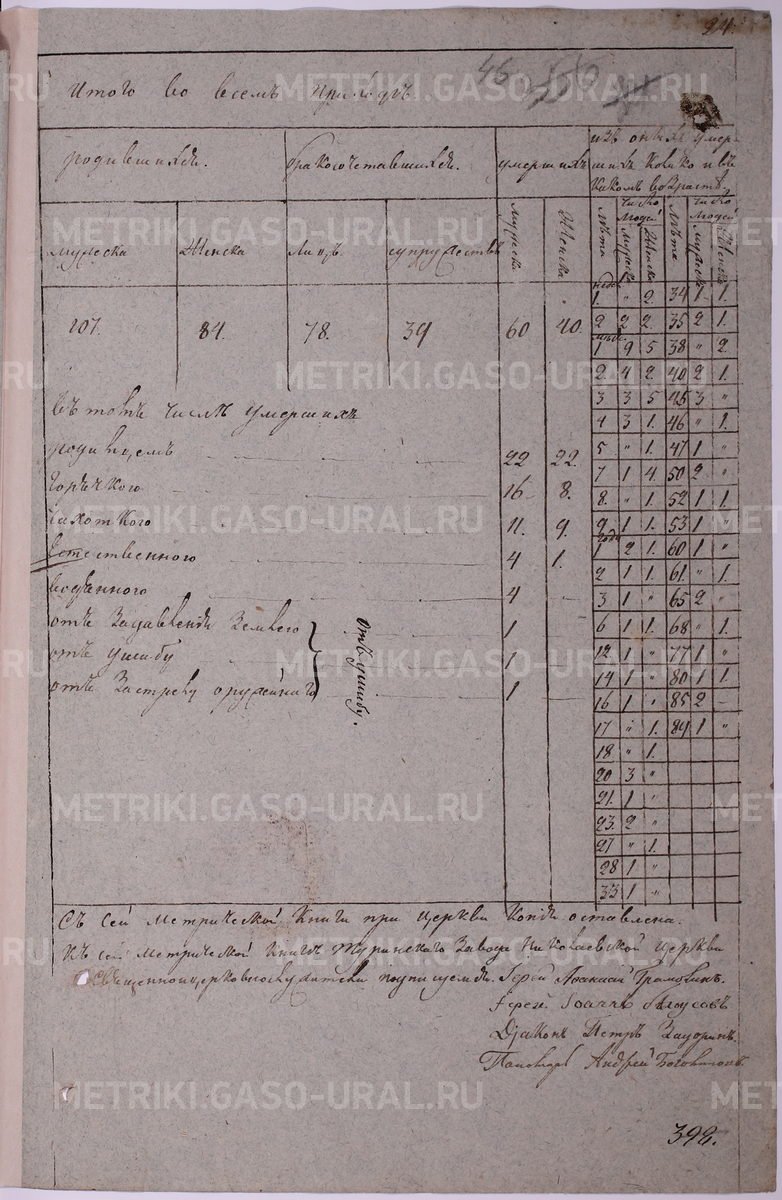 24.
46
Итого во всемъ приходѣ.
родившихся.
бракосочетавшихся.
умершихъ
изъ оныхъ умер-
шихъ колико и въ
какомъ возрастѣ.
мужеска
Женска
Лицъ
супружествъ
мужеска
Женска
Лѣта
число Людей
Мужеска
Женска
Лѣта
число Людей
Мужеска
Женска
107. 84. 78. 39 60 40.
недѣ.
1. " 2. 34 1. 1.
2 2 2. 35 2 1.
1 9 5 38 " 2.
2 4 2. 40 2 1.
3 3 5 45 3 "
4 3 1. 46 " 1.
5 " 1. 47 1 "
7 1 4. 50 2 "
8. " 1. 52 1 1
9 1 1. 53 1 "
годы
1 2 1. 60 1 "
2 1 1. 61. " 1.
3 1 " 65 2 "
6 1 1. 68 " 1.
12 1 " 77 1 "
14 1 " 80 1 1.
16 1 " 85 2 –
17 " 1. 89 1 "
18 " 1.
20 3 "
21. 1 "
23. 2 "
27 " 1.
28 1 "
33 1 "
въ томъ числѣ умершихъ
родимцемъ 22 22.
горячкою 16 8.
чахоткою 11. 9.
естественно 4 1.
водяною 4 –
отъ Задавленія Землею 1
отъ ушибу 1
отъ Застрелу оружейнаго 1
отъ ушибу.
Съ сей метрической Книги при Церкви Копія оставлена.
Къ сей метрической Книге Туринскаго Завода Николаевской Церкви
Священно и церковнослужители подписуемся. Іерей Афанасій
Іерей Іоаннъ Белоусовъ
Діаконъ Петръ
Пономарь Андрей
392.
METRIKI.GASO-URAL.RU